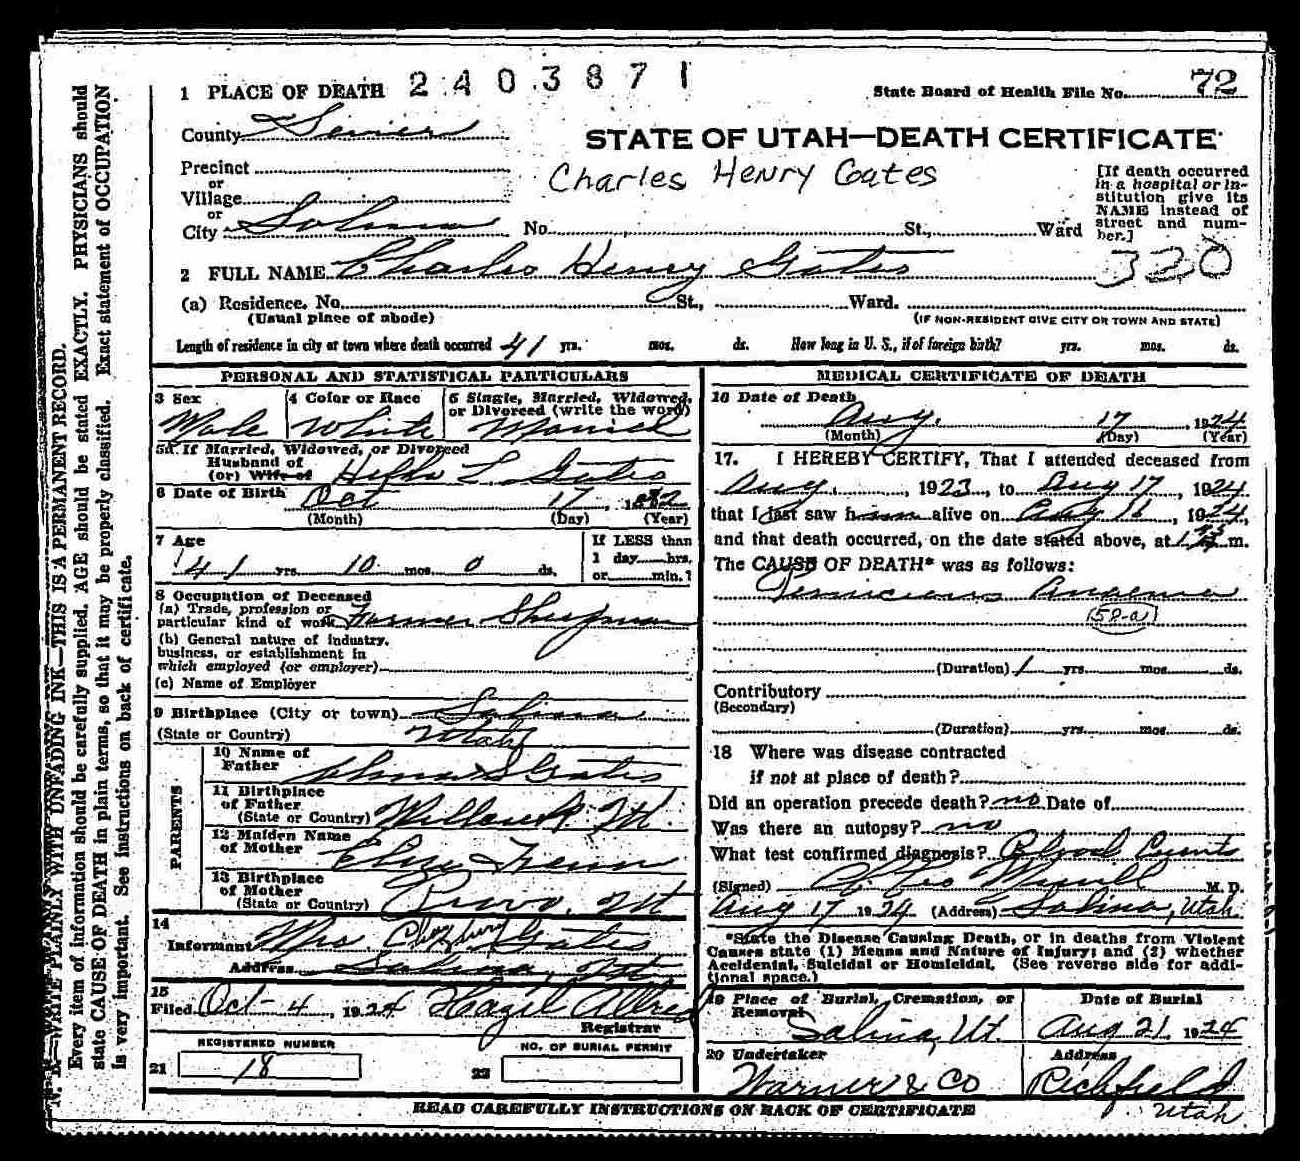 1 PLACE OF DEATH 2403871
State Board of Health File No. 72
County Sevier
STATE OF UTAH—DEATH CERTIFICATE
Precinct
or
Village
or
City Salina No. St., Ward
Charles Henry Gates
[If death occurred
in a hospital or in-
stitution give its
NAME instead of
street and num-
ber.]
320
2 FULL NAME Charles Henry Gates
(a) Residence. No. St., Ward.
(Usual place of abode) (IF NON-RESIDENT GIVE CITY OR TOWN AND STATE)
Length of residence in city or town where death occurred 41 yrs. mos. ds. How long in U. S., if of foreign birth? yrs. mos. ds.
PERSONAL AND STATISTICAL PARTICULARS
3 Sex 4 Color or Race 5 Single, Married, Widowed,
or Divorced (write the word)
Male White Married
5a If Married, Widowed, or Divorced
Husband of
(or) Wife of L. Gates
6 Date of Birth Oct 17, 1882
(Month) (Day) (Year)
7 Age If LESS than
1 day hrs.
41 yrs. 10 mos. 0 ds. or min.?
8 Occupation of Deceased
(a) Trade, profession or
particular kind of work Farmer Sheepman
(b) General nature of industry,
business, or establishment in
which employed (or employer)
(c) Name of Employer
9 Birthplace (City or town) Salina
(State or Country) Utah
PARENTS
10 Name of
Father S Gates
11 Birthplace
of Father
(State or Country) Ut.
12 Maiden Name
of Mother
13 Birthplace
of Mother
(State or Country) Provo, Ut
14
Informant Mrs. Gates
Address Salina, Ut
15
Filed Oct-4, 1924 Hazel Allred
Registrar
REGISTERED NUMBER NO. OF BURIAL PERMIT
21 18 22
MEDICAL CERTIFICATE OF DEATH
16 Date of Death
Aug. 17, 1924
(Month) (Day) (Year)
17. I HEREBY CERTIFY, That I attended deceased from
Aug., 1923, to Aug 17, 1924
that I last saw him alive on Aug 16, 1924,
and that death occurred, on the date stated above, at m.
The CAUSE OF DEATH* was as follows:
Pernicious Anaema
(58-a)
(Duration) 1 yrs. mos. ds.
Contributory
(Secondary)
(Duration) yrs. mos. ds.
18 Where was disease contracted
if not at place of death?
Did an operation precede death? no Date of
Was there an autopsy? no
What test confirmed diagnosis? Blood Counts
(Signed) M. D.
Aug 17 1924 (Address) Salina, Utah
*State the Disease Causing Death, or in deaths from Violent
Causes state (1) Means and Nature of Injury; and (2) whether
Accidental, Suicidal or Homicidal. (See reverse side for addi-
tional space.)
19 Place of Burial, Cremation, or
Removal
Date of Burial
Salina, Ut. Aug 21 1924
20 Undertaker Address
Warner & Co Richfield
Utah
READ CAREFULLY INSTRUCTIONS ON BACK OF CERTIFICATE
N. B.—WRITE PLAINLY WITH UNFADING INK—THIS IS A PERMANENT RECORD.
Every item of information should be carefully supplied. AGE should be stated EXACTLY. PHYSICIANS should
state CAUSE OF DEATH in plain terms, so that it may be properly classified. Exact statement of OCCUPATION
is very important. See instructions on back of certificate.